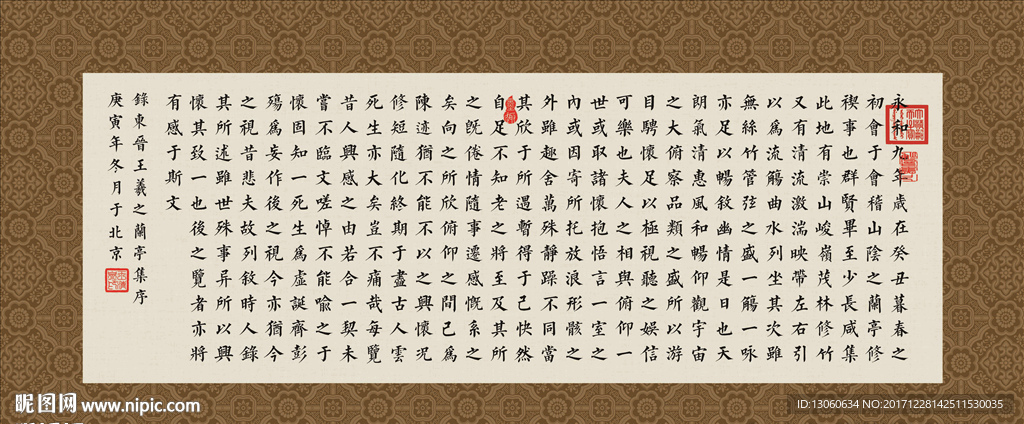 永和九年歲在癸丑暮春之
初會于會稽山陰之蘭亭修
禊事也群賢畢至少長咸集
此地有崇山峻嶺茂林修竹
又有清流激湍映帶左右引
以爲流觴曲水列坐其次雖
無絲竹管弦之盛一觴一咏
亦足以暢敘幽情是日也天
朗氣清惠風和暢仰觀宇宙
之大俯察品類之盛所以游
目騁懷足以極視聽之娛信
可樂也夫人之相與俯仰一
世或取諸懷抱悟言一室之
內或因寄所托放浪形骸之
外雖趣舍萬殊靜躁不同當
其欣于所遇暫得于己快然
自足不知老之將至及其所
之既倦情隨事遷感慨系之
矣向之所欣俯仰之間已爲
陳迹猶不能不以之興懷況
修短隨化終期于盡古人雲
死生亦大矣豈不痛哉每覽
昔人興感之由若合一契未
嘗不臨文嗟悼不能喻之于
懷固知一死生爲虛誕齊彭
殤爲妄作後之視今亦猶今
之視昔悲夫故列敘時人錄
其所述雖世殊事异所以興
懷其致一也後之覽者亦將
有感于斯文
錄東晉王羲之蘭亭集序
庚寅年冬月于北京
昵图网 www.nipic.com
ID:13060634 NO:20171228142511530035